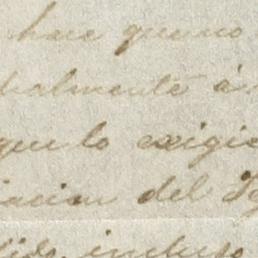 hace que no
palmente á
que lo exigie
iacion del
dido incluso